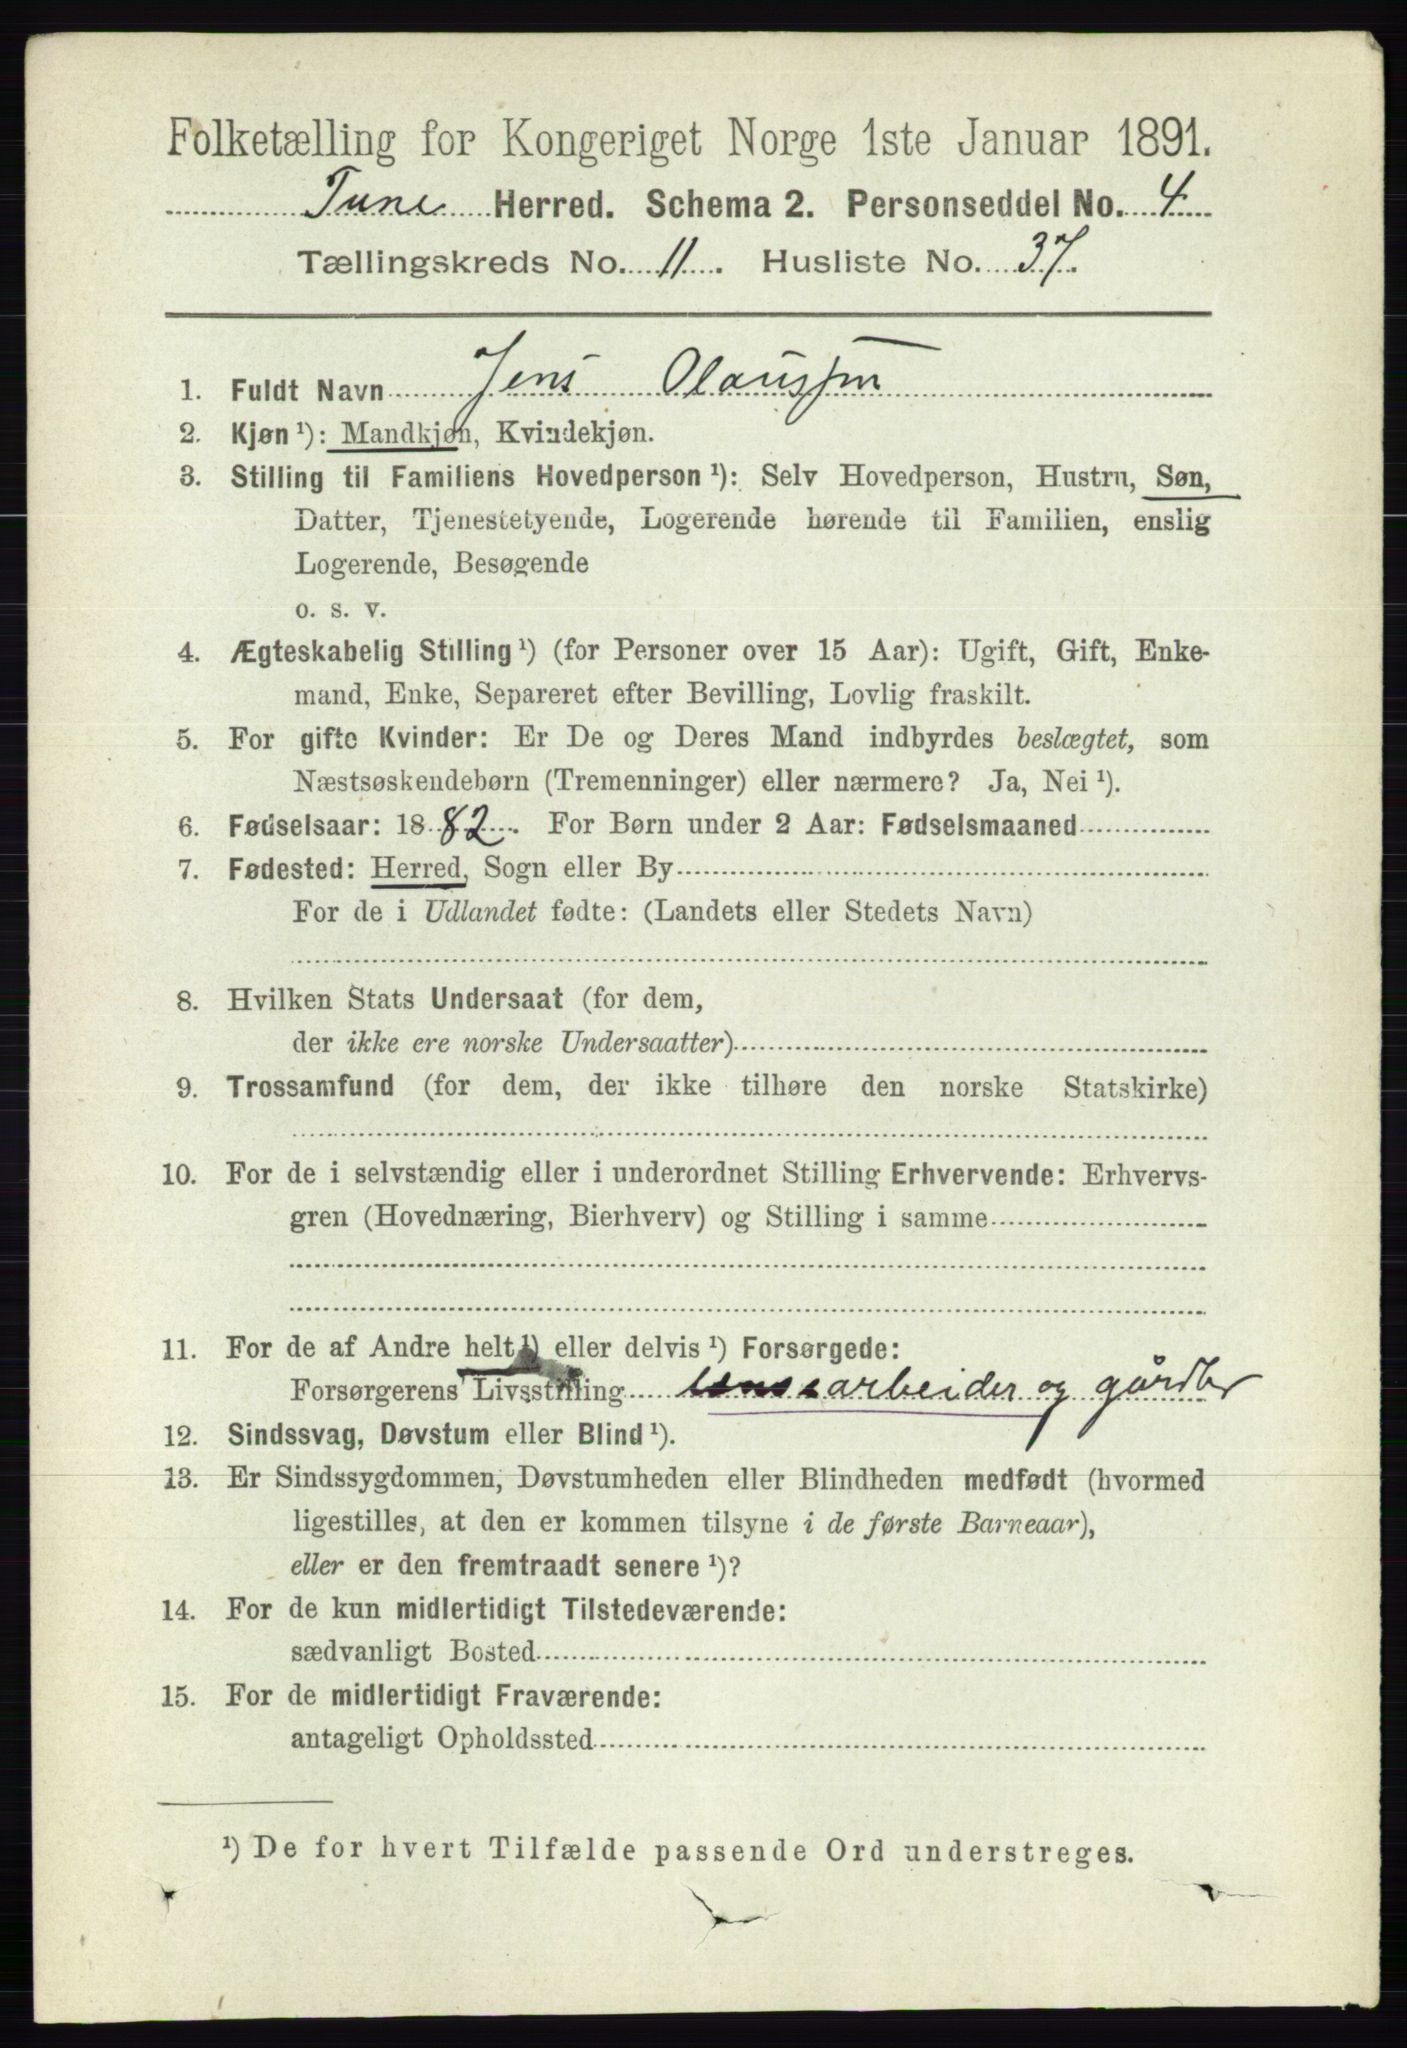 Folketælling for Kongeriget Norge 1ste Januar 1891.
Tune Herred. Schema 2. Personseddel No. 4
Tællingskreds No. 11. Husliste No. 37.
1. Fuldt Navn Jens Olaussen
2. Kjøn ¹): Mandkjøn, Kvindekjøn.
3. Stilling til Familiens Hovedperson ¹): Selv Hovedperson, Hustru, Søn,
Datter, Tjenestetyende, Logerende hørende til Familien, enslig
Logerende, Besøgende
o. s. v.
4. Ægteskabelig Stilling ¹) (for Personer over 15 Aar): Ugift, Gift, Enke-
mand, Enke, Separeret efter Bevilling, Lovlig fraskilt.
5. For gifte Kvinder: Er De og Deres Mand indbyrdes beslægtet, som
Næstsøskendebørn (Tremenninger) eller nærmere? Ja, Nei ¹).
6. Fødselsaar: 1882. For Børn under 2 Aar: Fødselsmaaned
7. Fødested: Herred, Sogn eller By
For de i Udlandet fødte: (Landets eller Stedets Navn)
8. Hvilken Stats Undersaat (for dem,
der ikke ere norske Undersaatter)
9. Trossamfund (for dem, der ikke tilhøre den norske Statskirke)
10. For de i selvstændig eller i underordnet Stilling Erhvervende: Erhvervs-
gren (Hovednæring, Bierhverv) og Stilling i samme
11. For de af Andre helt ¹) eller delvis ¹) Forsørgede:
Forsørgerens Livsstilling lensearbeider og gårdbr
12. Sindssvag, Døvstum eller Blind ¹).
13. Er Sindssygdommen, Døvstumheden eller Blindheden medfødt (hvormed
ligestilles, at den er kommen tilsyne i de første Barneaar),
eller er den fremtraadt senere ¹)?
14. For de kun midlertidigt Tilstedeværende:
sædvanligt Bosted
15. For de midlertidigt Fraværende:
antageligt Opholdssted
¹) De for hvert Tilfælde passende Ord understreges.